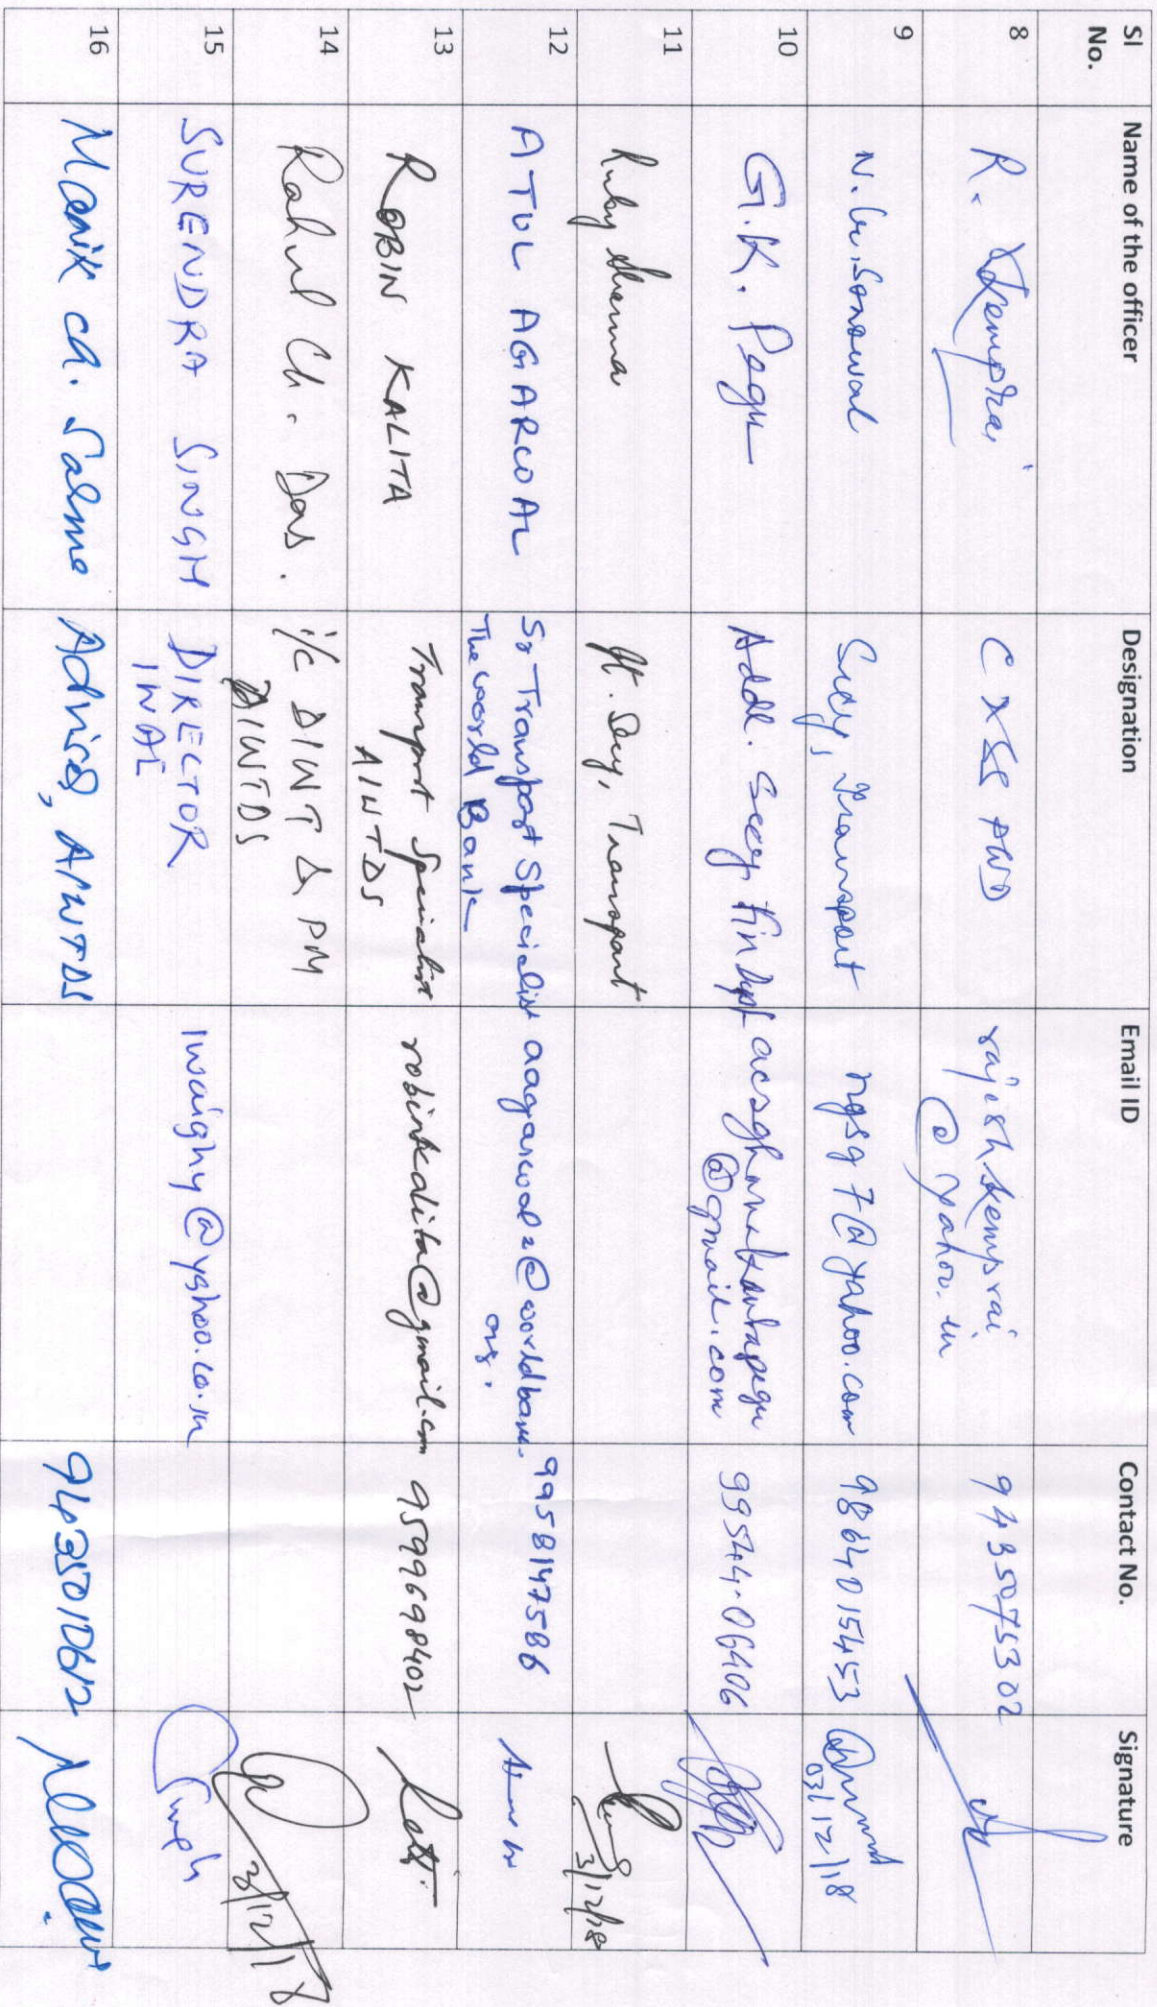 Sl No. Name of the officer Designation Email ID Contact No. Signature
8 R. Kemprai C PWD rajeshkemprai 9435075302
@yahoo.in
9 N. Sonowal Secy, Transport ngsg7@yahoo.com 9864015453
03/12/18
10 G.K. Pegu Addl. Secy, Fin Dept acsghanakantapegu 99544-06406
@gmail.com
11 Ruby Sharma Jt. Secy, Transport
3/12/18
12 ATUL AGARWAL Sr Transport Specialist aagarwal2@worldbank. 9958147586
The World Bank org.
13 ROBIN KALITA Transport Specialist robinkalita@gmail.com 9599698402
AIWTDS
14 Rahul Ch. Das. i/c DIWT & PM
AIWTDS 3/12/18
15 SURENDRA SINGH DIRECTOR iwaighy@yahoo.co.in Singh
IWAI
16 Manik Ch. Advisor, AIWTDS 9435010612